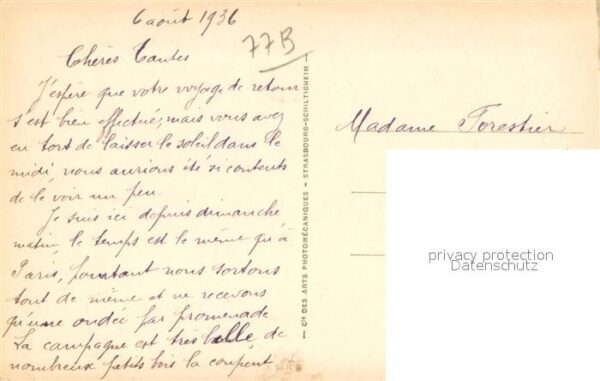 6 août 1936
77B
Chères Tantes
J'espère que votre voyage de retour
s'est bien effectué, mais vous avez
eu tort de laisser le soleil dans le
midi, nous aurions été si contents
de le voir un peu.
Je suis ici depuis dimanche
matin, le temps est le même qu'à
Paris, pourtant nous sortons
tout de même et ne recevons
qu'une ondée par promenade
La campagne est très belle, de
nombreux petits bois la coupent
Cie DES ARTS PHOTOMÉCANIQUES - STRASBOURG-SCHILTIGHEIM
Madame Forestier
privacy protection
Datenschutz